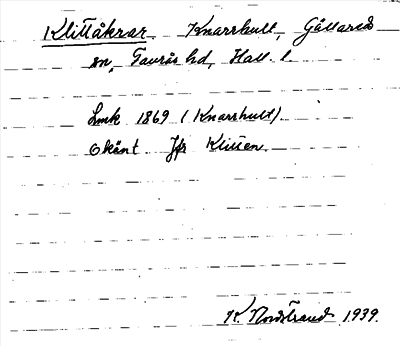 Klittåkrar, Knarrhult, Gällareds
sn, Faurås hd, Hall. l.
Lmk 1869 (Knarrhult).
Okänt. Jfr Klitten.
K. Nordstrand 1939.